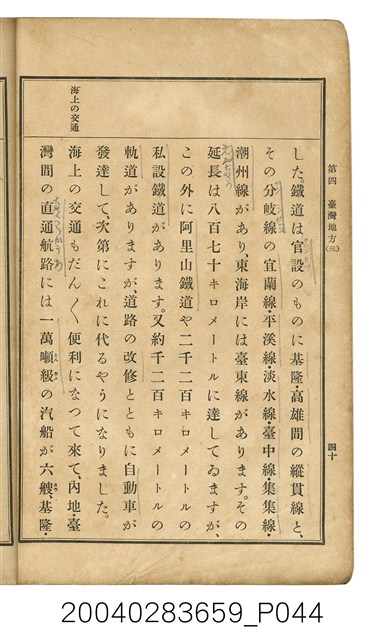 第四 臺灣地方(三)
四十
した。鐵道は官設のものに基隆・高雄間の縱貫線と、
その分岐線の宜蘭線・平溪線・淡水線・臺中線・集集線・
潮州線があり、東海岸には臺東線があります。その
延長は八百七十キロメートルに達してゐますが、
この外に阿里山鐵道や二千二百キロメートルの
私設鐵道があります。又約千二百キロメートルの
軌道がありますが、道路の改修とともに自動車が
發達して、次第にこれに代るやうになりました。
海上の交通
海上の交通もだん〳〵便利になつて來て、內地・臺
灣間の直通航路には一萬噸級の汽船が六艘、基隆・
20040283659_P044